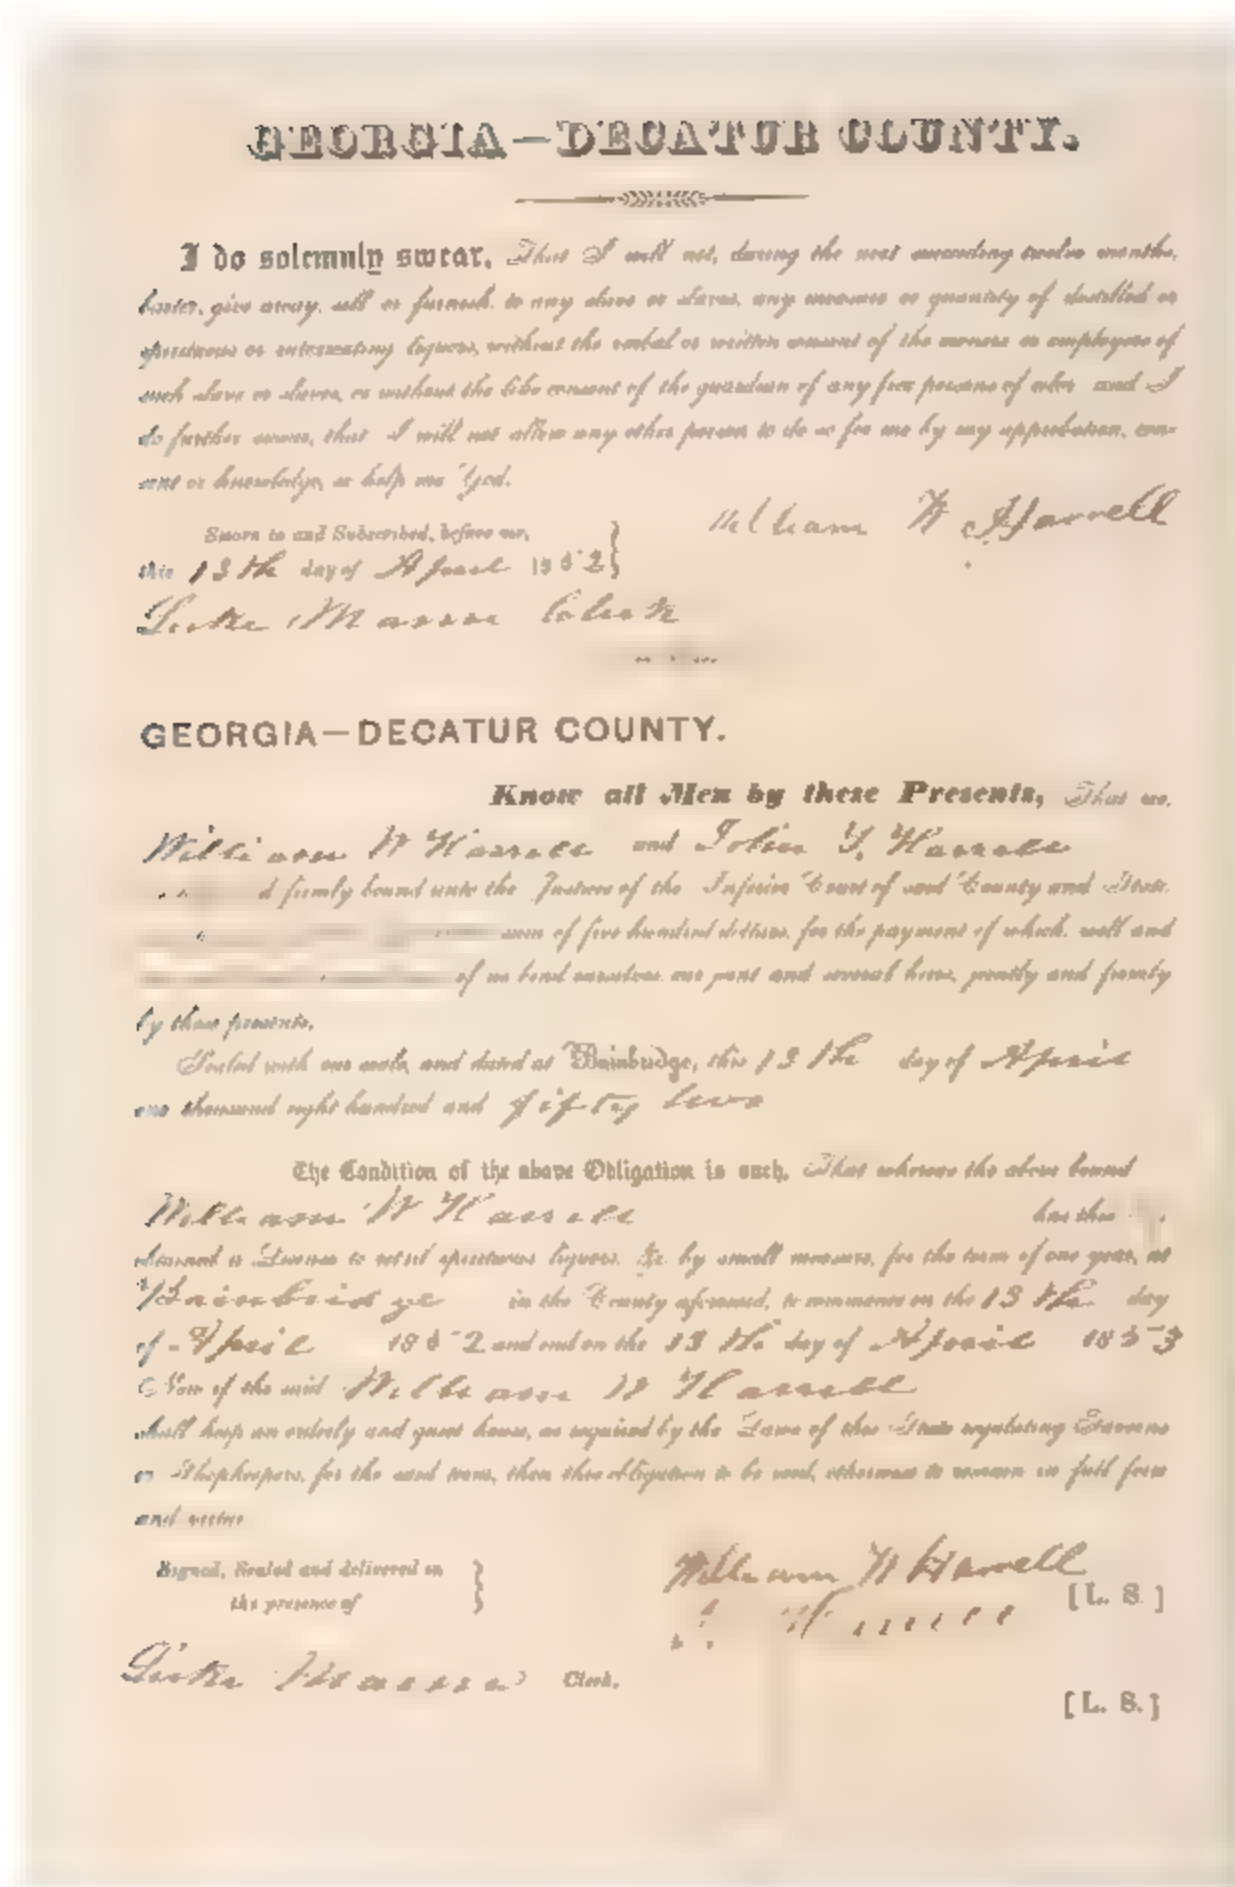 GEORGIA—DECATUR COUNTY.
I do solemnly swear, That I will not, during the next succeeding twelve months,
barter, give away, sell or furnish, to any slave or slaves, any measure or quantity of distilled or
spirituous or intoxicating liquors, without the verbal or written consent of the owners or employers of
such slave or slaves, or without the like consent of the guardian of any free persons of color and I
do further swear, that I will not allow any other person to do so for me by my approbation, con-
sent or knowledge, so help me God.
William W Harrell
Sworn to and Subscribed, before me,
this 13th day of April 1852
Clerk
GEORGIA—DECATUR COUNTY.
Know all Men by these Presents, That we,
William W Harrell and John Harrell
d firmly bound unto the Justices of the Inferior Court of said County and State,
sum of five hundred dollars, for the payment of which, well and
of us bind ourselves, our joint and several heirs, jointly and firmly
by these presents.
Sealed with our seals, and dated at Bainbridge, this 13th day of April
one thousand eight hundred and fifty two
The Condition of the above Obligation is such, That whereas the above bound
William W Harrell has this
obtained a License to retail spirituous liquors, &c by small measure, for the term of one year, at
Bainbridge in the County aforesaid, to commence on the 13th day
of April 1852 and end on the 13th day of April 1853
Now if the said William W Harrell
shall keep an orderly and quiet house, as required by the Laws of this State regulating Taverns
or Shopkeepers, for the said term, then this obligation to be void, otherwise to remain in full force
and virtue
Signed, Sealed and delivered in
the presence of
William W Harrell [L. S.]
Clerk.
[L. S.]